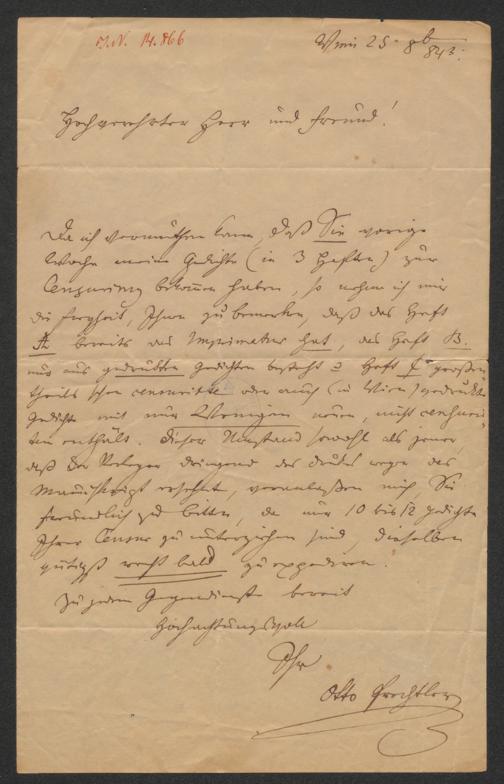 J.N. 14.866
Wien 25. 8b 843.
Hochverehrter Herr und Freund!
Da ich vermuthen kann, daß Sie vorige
Woche meine Gedichte (in 3 Heften) zur
Censurirung bekommen haben, so nehme ich mir
die Freyheit, Ihnen zu bemerken, daß das Heft
A bereits das Imprimatur hat, das Heft B.
nur aus gedruckten Gedichten besteht u Heft C großen
theils schon censurirte oder auch (in Wien) gedruckte
Gedichte mit nur Wenigen neuen, nicht censurir-
ten enthält. Dieser Umstand sowohl als jener
daß der Verleger dringend des Druckes wegen das
Manuskript ersehnt, veranlaßen mich Sie
freundlich zu bitten, da nur 10 bis 12 Gedichte
Ihrer Censur zu unterziehen sind, dieselben
gütigst recht bald zu expediren.
Zu jedem Gegendienste bereit
Hochachtungsvoll
Ihr
Otto Prechtler